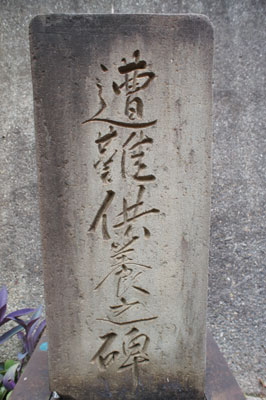 遭難供養之碑